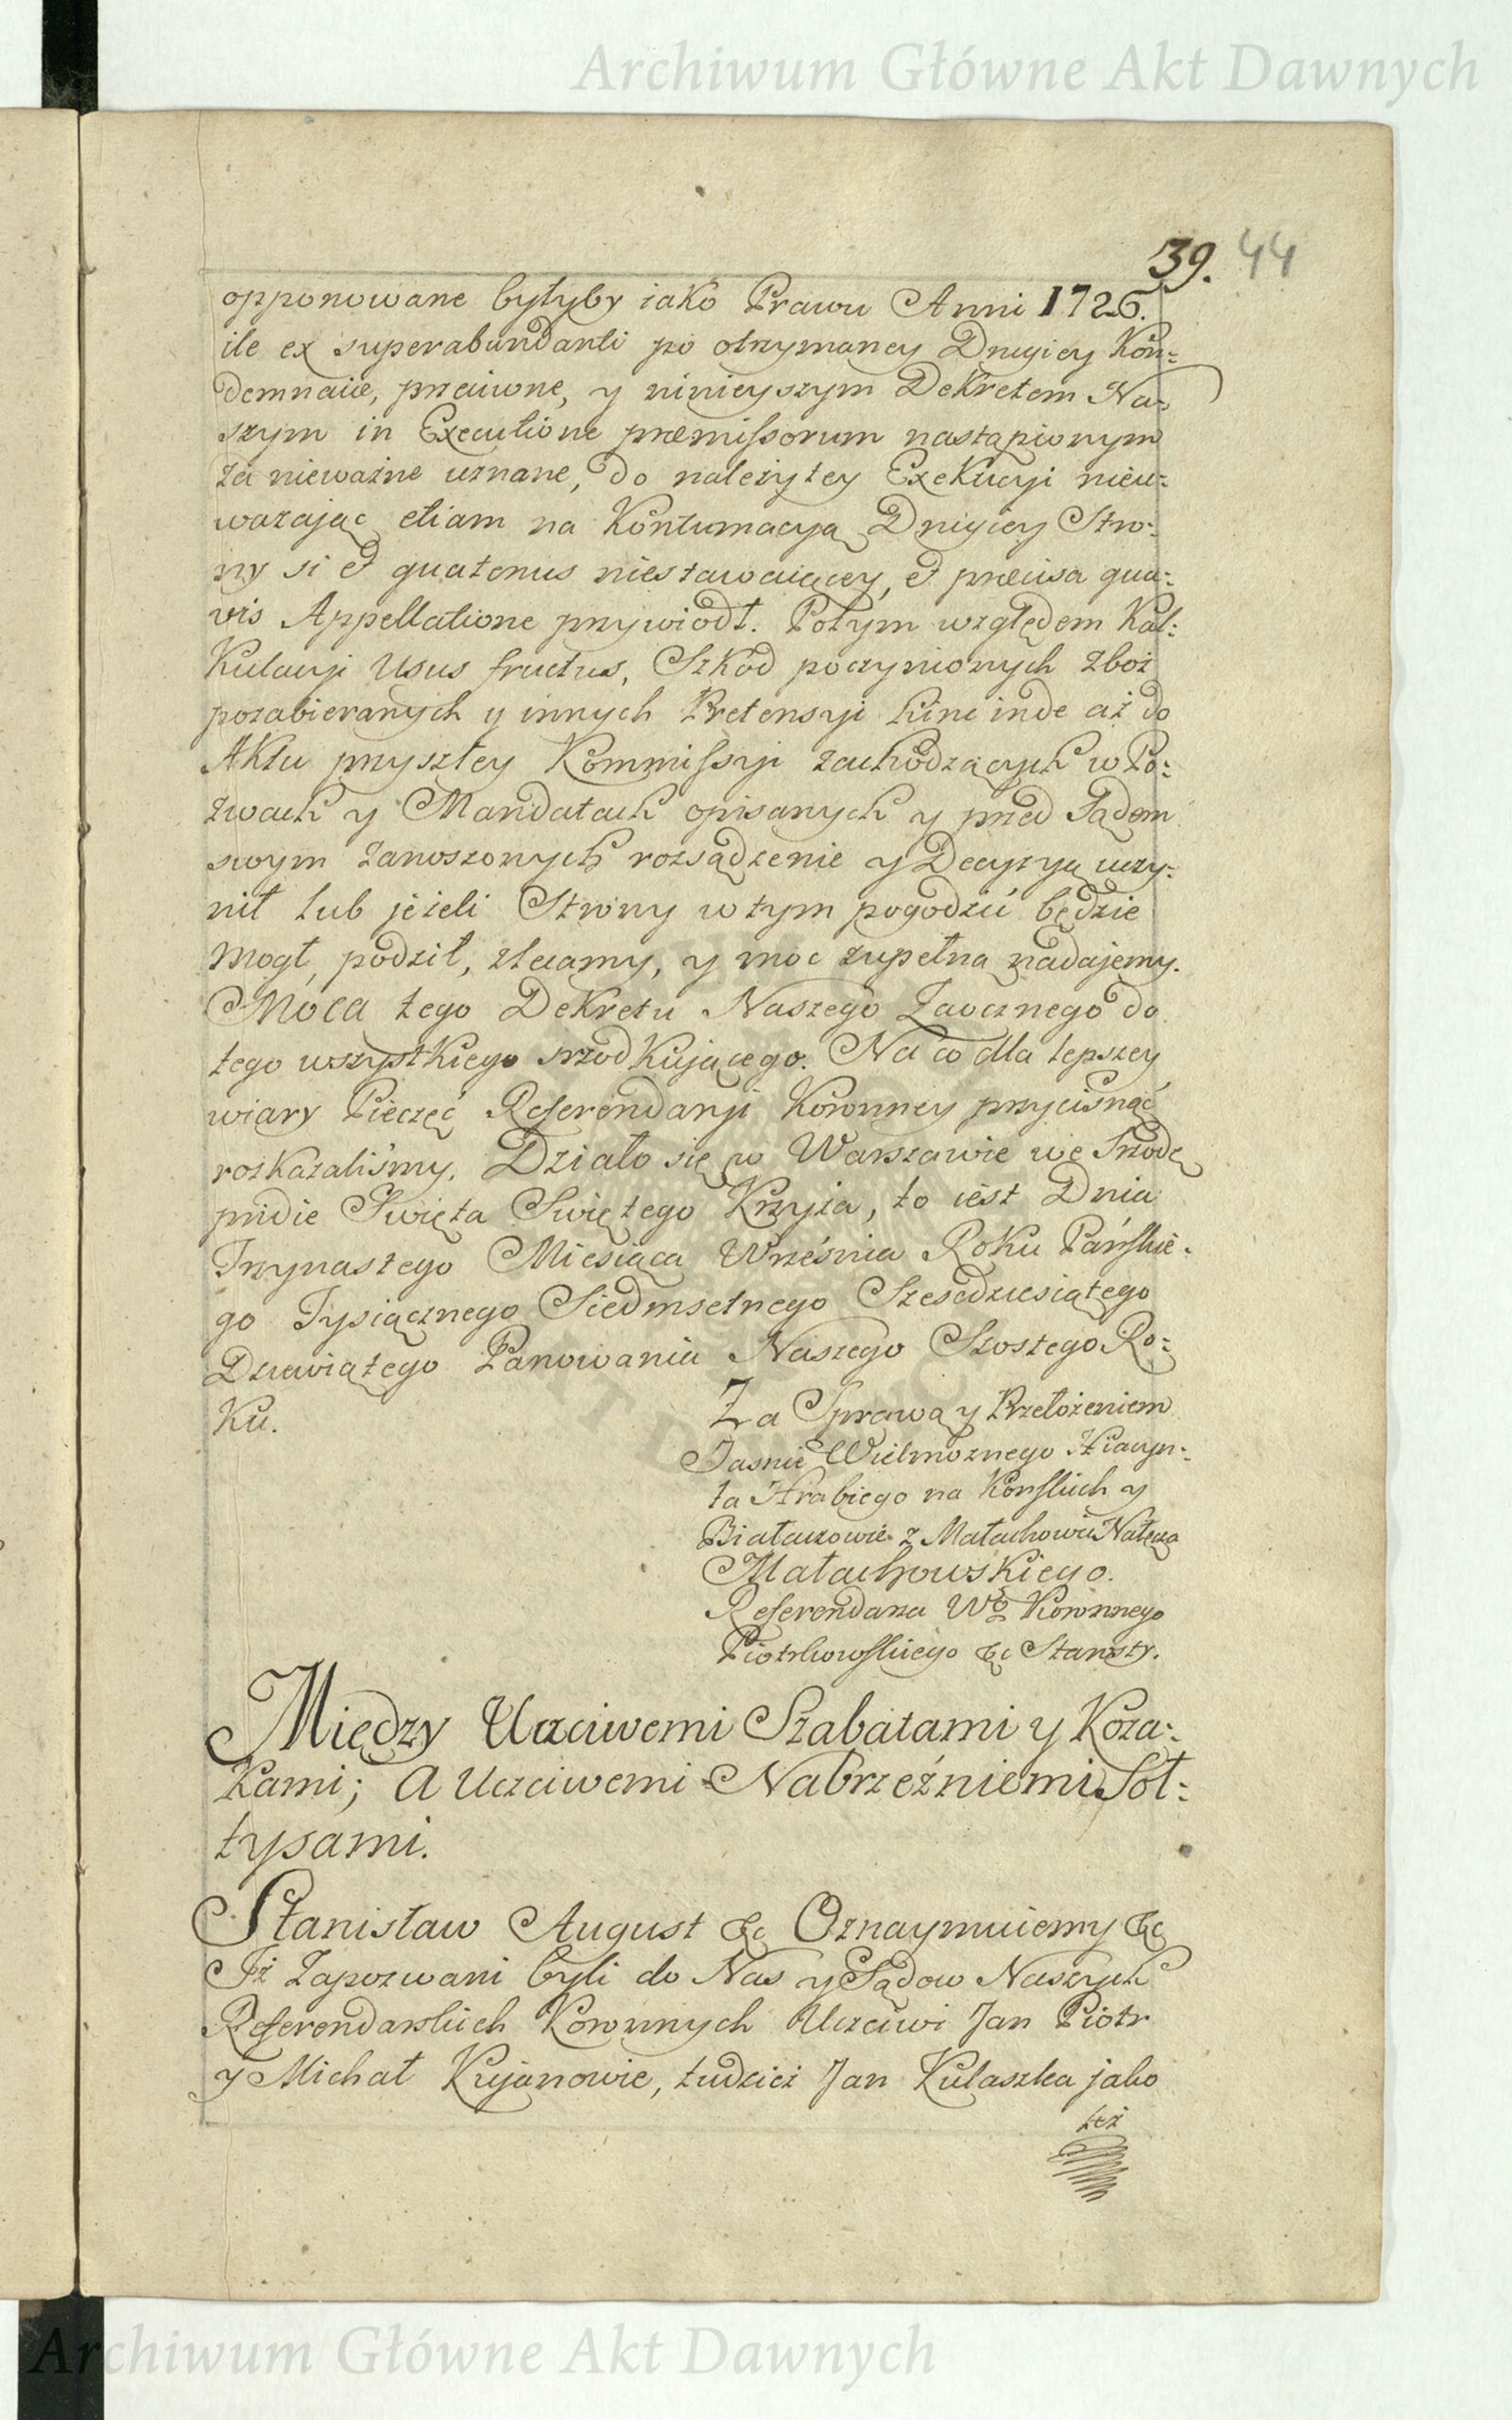 Archiwum Główne Akt Dawnych
39. 44
opponowane byłyby iako Prawu Anni 1726.
ile ex superabundanti po otrzymaney Drugiey Kon-
demnacie, przeciwne, y ninieyszym Dekretem Na-
szym in Executione præmissorum nastąpionym
za nieważne uznane, do należytey Exekucyi nieu-
ważając etiam na Kontumacyą Drugiey Stro-
ny si et quatenus niestawaiącey, et præcisa qua-
vis Appellatione przywiodł. Potym względem Kal-
Kulacyi Usus fructus, Szkod poczynionych zboż
pozabieranych y innych Pretensyi hinc inde aż do
Aktu przyszłey Kommissyi zachodzących w Po-
zwach y Mandatach opisanych y przed Sądem
swym zanoszonych rozsądzenie y Decyzyą uczy-
nił lub jeżeli Strony w tym pogodzić będzie
mogł, podził, zlecamy, y moc zupełną nadajemy.
Mocą tego Dekretu Naszego Zaocznego do
tego wszystkiego srzodkującego. Na co dla lepszey
wiary Pieczęć Referendaryi Koronney przycisnąć
rozkazaliśmy. Działo się w Warszawie we Srzodę
pridie Swięta Swiętego Krzyża, to iest Dnia
Trzynastego Miesiąca Września Roku Pańskie-
go Tysiącznego Siedmsetnego Szescdziesiątego
Dziewiątego Panowania Naszego Szostego Ro-
Ku.
Za Sprawą y Przełożeniem
Jasnie Wielmoznego Hiacyn-
ta Hrabiego na Konskich y
Białaczowie z Małachowic Nałęcz
Małachowskiego.
Referendarza Wo Koronnego
Piotrkowskiego &c Starosty.
Między Uczciwemi Szabatami y Koza-
Kami; A Uczciwemi Nabrzeźniemi Soł-
tysami.
Stanisław August &c Oznaymuiemy &c
Iż Zapozwani byli do Nas y Sądow Naszych
Referendarskich Koronnych Uczciwi Jan Piotr
y Michał Kujanowie, tudzież Jan Kulaszka jako
też
Archiwum Główne Akt Dawnych